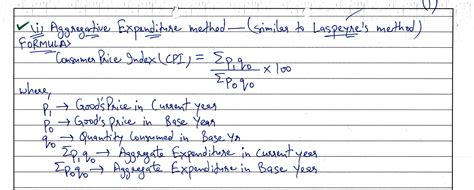 (1)
✓ (i) Aggregative Expenditure method — (similar to Laspeyre's method)
FORMULA>
Consumer Price Index (CPI) = Σp₁q₀ / Σp₀q₀ × 100
where,
p₁ → Good's Price in Current year
p₀ → Good's price in Base Year
q₀ → Quantity Consumed in Base Yr
Σp₁q₀ → Aggregate Expenditure in Current year
Σp₀q₀ → Aggregate Expenditure in Base Year